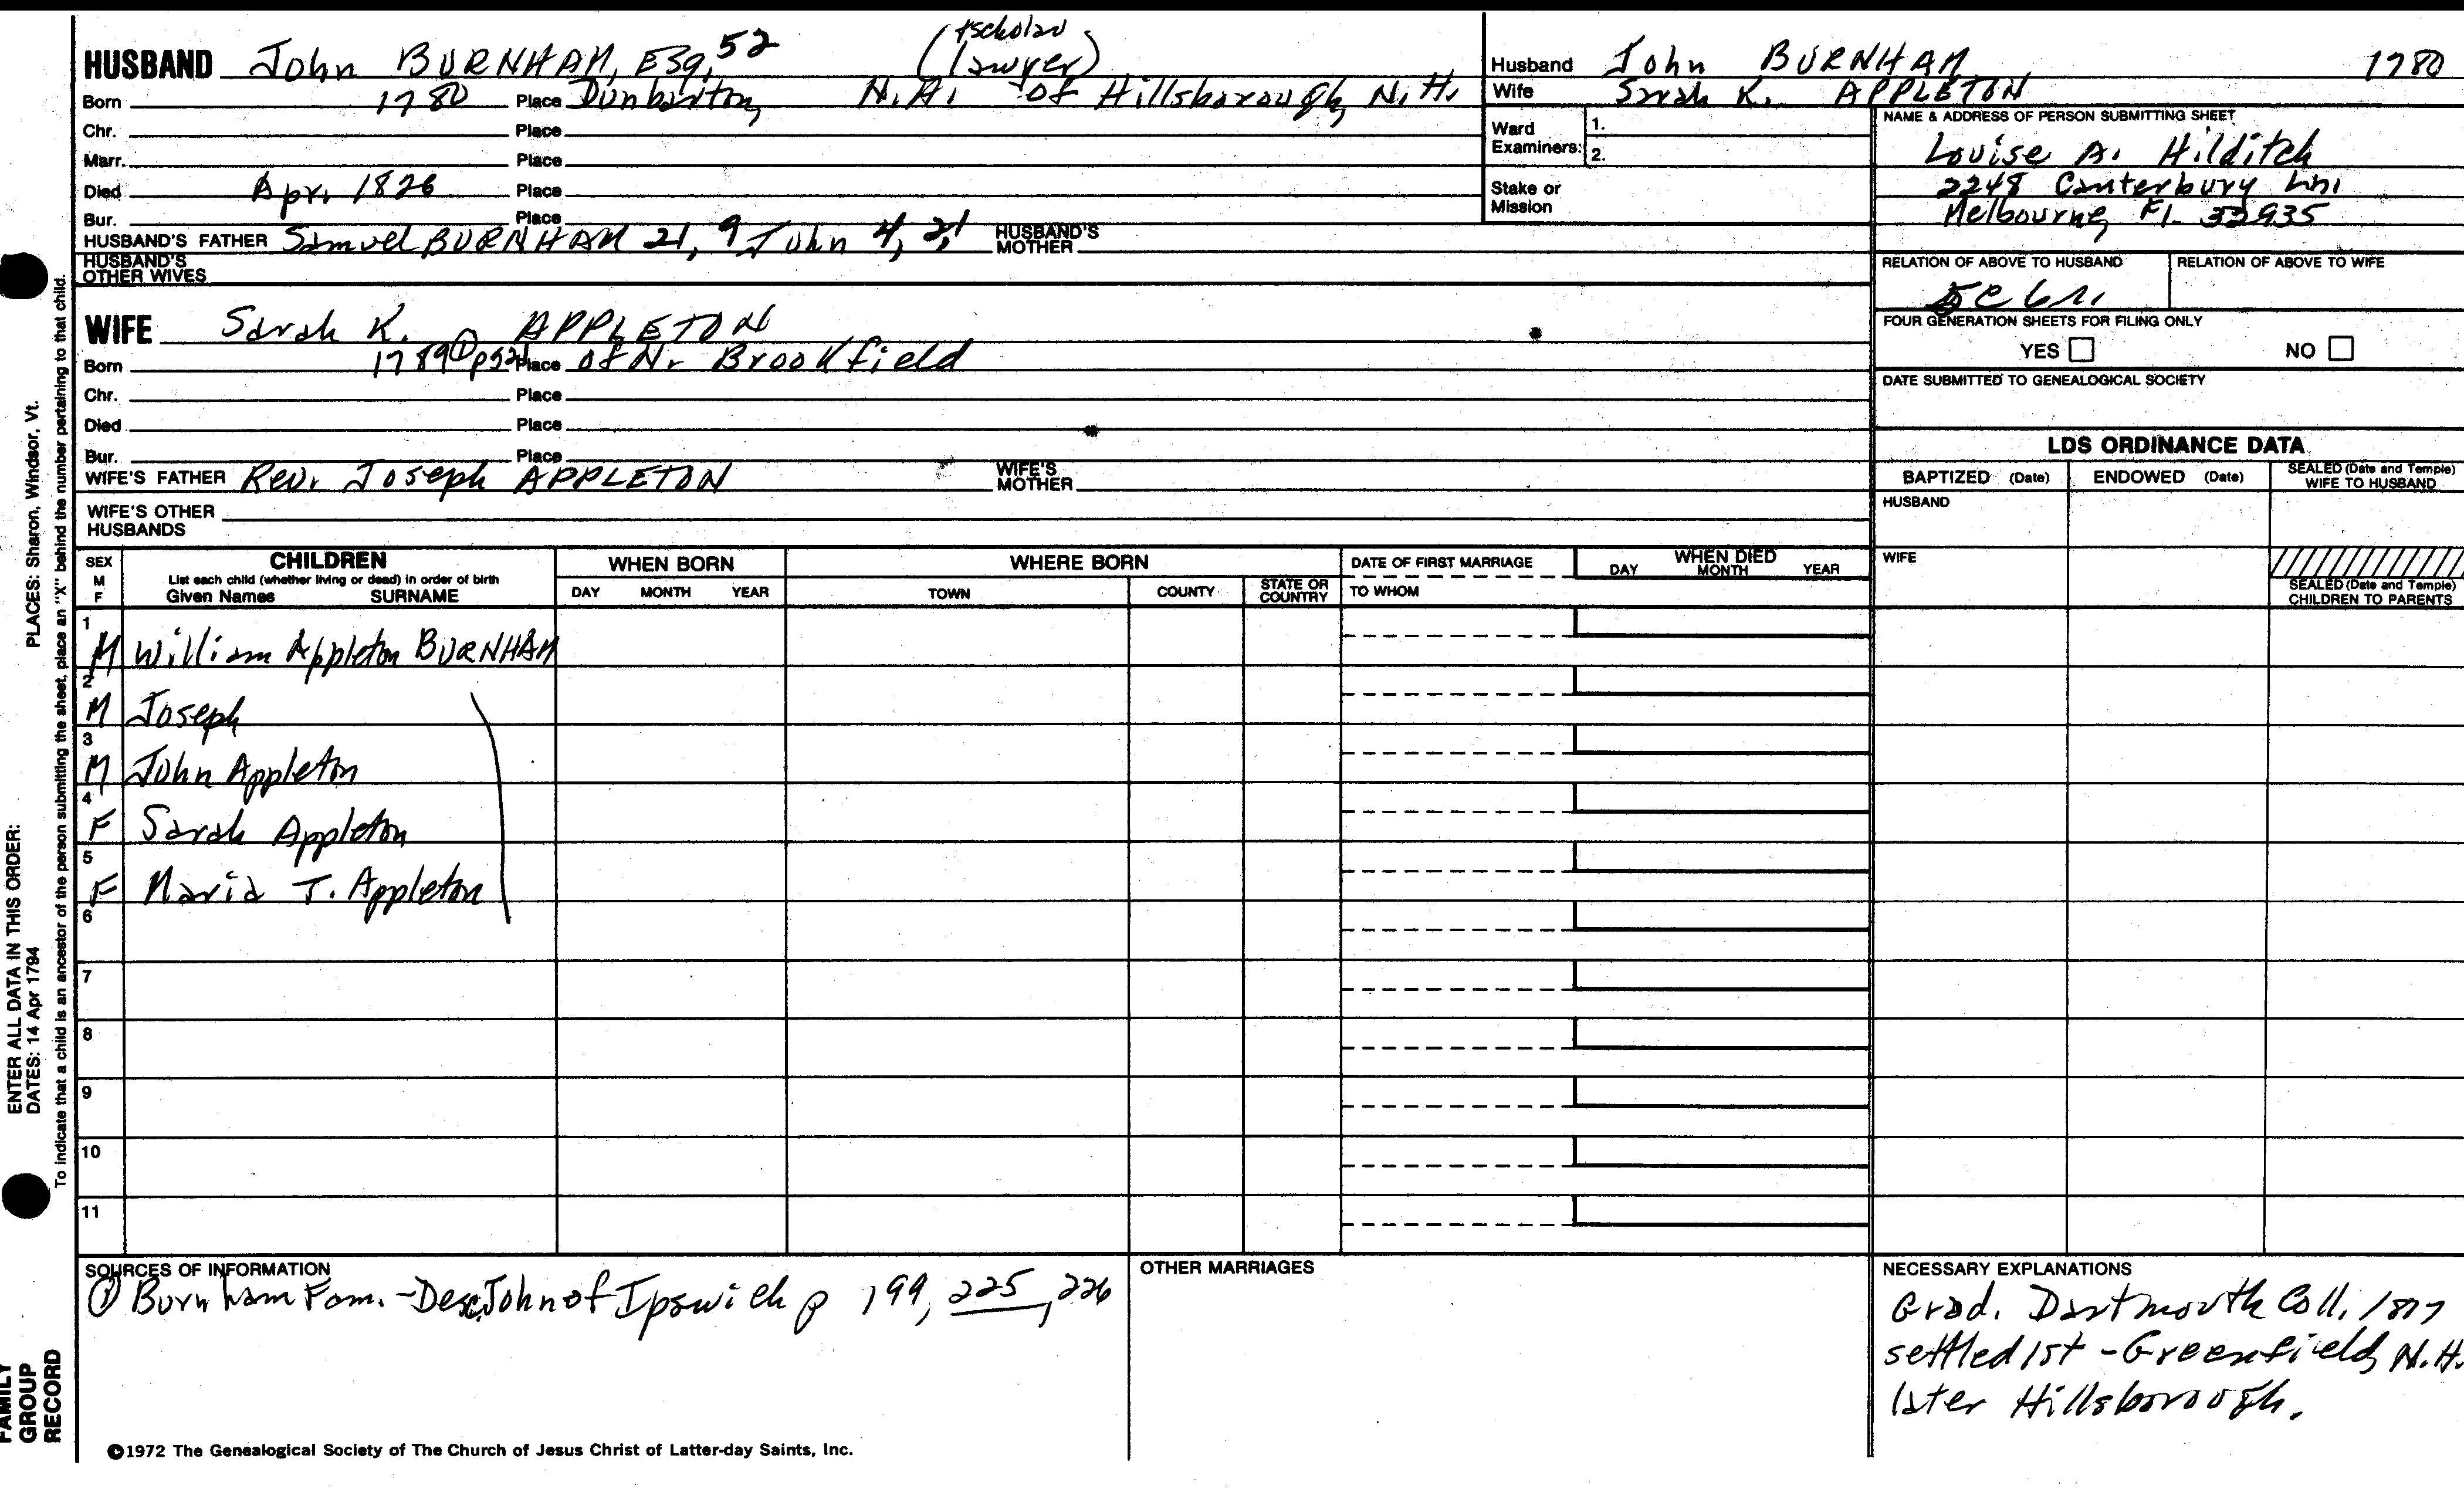 (+scholar
HUSBAND John BURNHAM, Esq, 52 (lawyer)
Born 1780 Place Dunbarton, N.H. of Hillsborough, N.H.
Chr. Place
Marr. Place
Died Apr. 1826 Place
Bur. Place
HUSBAND'S FATHER Samuel BURNHAM 21, 9 John 4, 2, 1 HUSBAND'S MOTHER
HUSBAND'S OTHER WIVES
WIFE Sarah K. APPLETON
Born 1789 ① p521 Place of N. Brookfield
Chr. Place
Died Place
Bur. Place
WIFE'S FATHER Rev. Joseph APPLETON WIFE'S MOTHER
WIFE'S OTHER HUSBANDS
Husband John BURNHAM 1780
Wife Sarah K. APPLETON
Ward Examiners: 1.
2.
Stake or Mission
NAME & ADDRESS OF PERSON SUBMITTING SHEET
Louise A. Hilditch
2248 Canterbury Ln.
Melbourne, Fl. 32935
RELATION OF ABOVE TO HUSBAND RELATION OF ABOVE TO WIFE
FOUR GENERATION SHEETS FOR FILING ONLY
YES NO
DATE SUBMITTED TO GENEALOGICAL SOCIETY
LDS ORDINANCE DATA
BAPTIZED (Date) ENDOWED (Date) SEALED (Date and Temple) WIFE TO HUSBAND
HUSBAND
WIFE
SEALED (Date and Temple) CHILDREN TO PARENTS
SEX M F CHILDREN WHEN BORN WHERE BORN DATE OF FIRST MARRIAGE WHEN DIED
List each child (whether living or dead) in order of birth
Given Names SURNAME DAY MONTH YEAR TOWN COUNTY STATE OR COUNTRY TO WHOM DAY MONTH YEAR
1 M William Appleton BURNHAM
2 M Joseph
3 M John Appleton
4 F Sarah Appleton
5 F Maria T. Appleton
6
7
8
9
10
11
SOURCES OF INFORMATION
① Burnham Fam. - Desc. John of Ipswich p 199, 225, 226
OTHER MARRIAGES
NECESSARY EXPLANATIONS
Grad. Dartmouth Coll. 1807
settled 1st - Greenfield, N.H.
later Hillsborough.
©1972 The Genealogical Society of The Church of Jesus Christ of Latter-day Saints, Inc.
PLACES: Sharon, Windsor, Vt.
To indicate that a child is an ancestor of the person submitting the sheet, place an "X" behind the number pertaining to that child.
ENTER ALL DATA IN THIS ORDER:
DATES: 14 Apr 1794
FAMILY
GROUP
RECORD